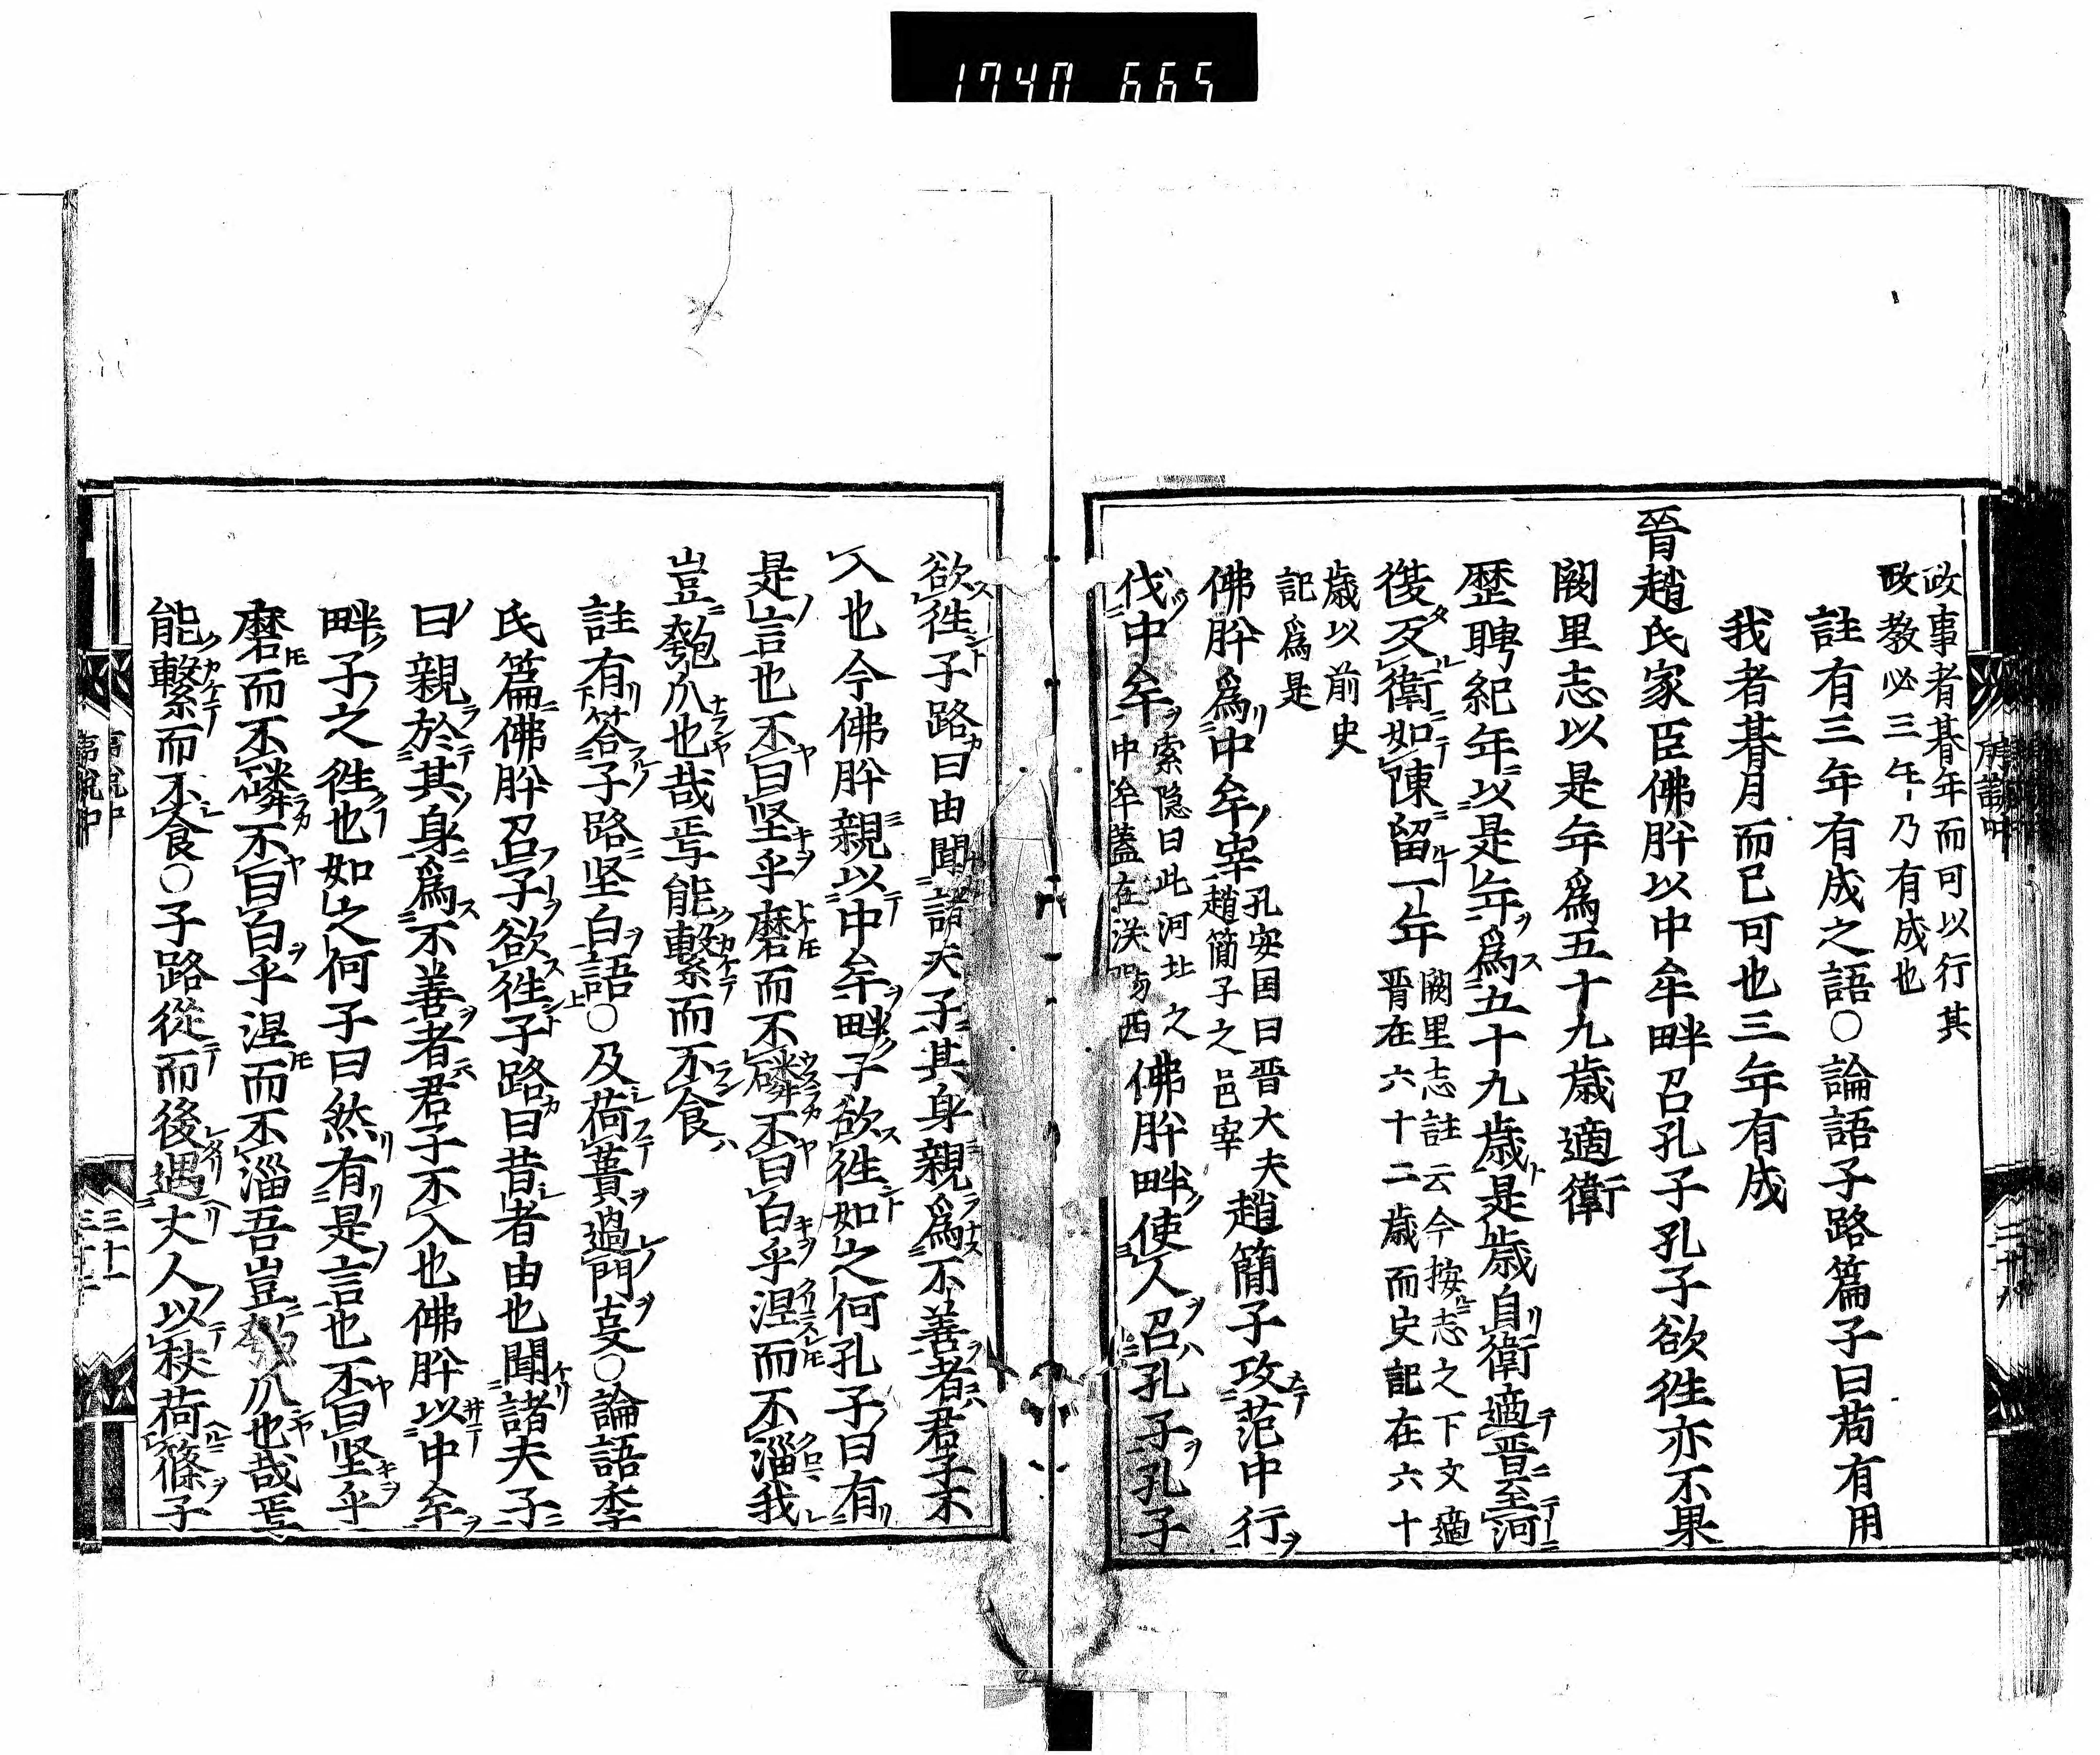 1740 665
政事者朞年而可以行其
政教必三年乃有成也
註有三年有成之語○論語子路篇子曰苟有用
我者朞月而已可也三年有成
晉趙氏家臣佛肸以中牟畔召孔子孔子欲徃亦不果
闕里志以是年爲五十九歲適衛
歷聘紀年以是年爲五十九歲是歲自衛適晋至河
復反衛如陳留一年
闕里志註云今按志之下文適
晋在六十二歲而史記在六十
歲以前史
記爲是
佛肸爲中牟宰
孔安国曰晋大夫
趙簡子之邑宰
趙簡子攻范中行
伐中牟
索隠曰此河北之
中牟蓋在漢陽西
佛肸畔使人召孔子孔子
欲徃子路曰由聞諸夫子其身親爲不善者君子不
入也今佛肸親以中牟畔子欲徃如之何孔子曰有
是言也不曰坚乎磨而不磷不曰白乎涅而不淄我
豈匏瓜也哉焉能繫而不食
註有答子路坚白語○及荷蕢過門㕝○論語季
氏篇佛肸召子欲徃子路曰昔者由也聞諸夫子
曰親於其身爲不善者君子不入也佛肸以中牟
畔子之徃也如之何子曰然有是言也不曰坚乎
磨而不磷不曰白乎涅而不淄吾豈匏瓜也哉焉
能繫而不食○子路從而後遇丈人以杖荷篠子
三十一